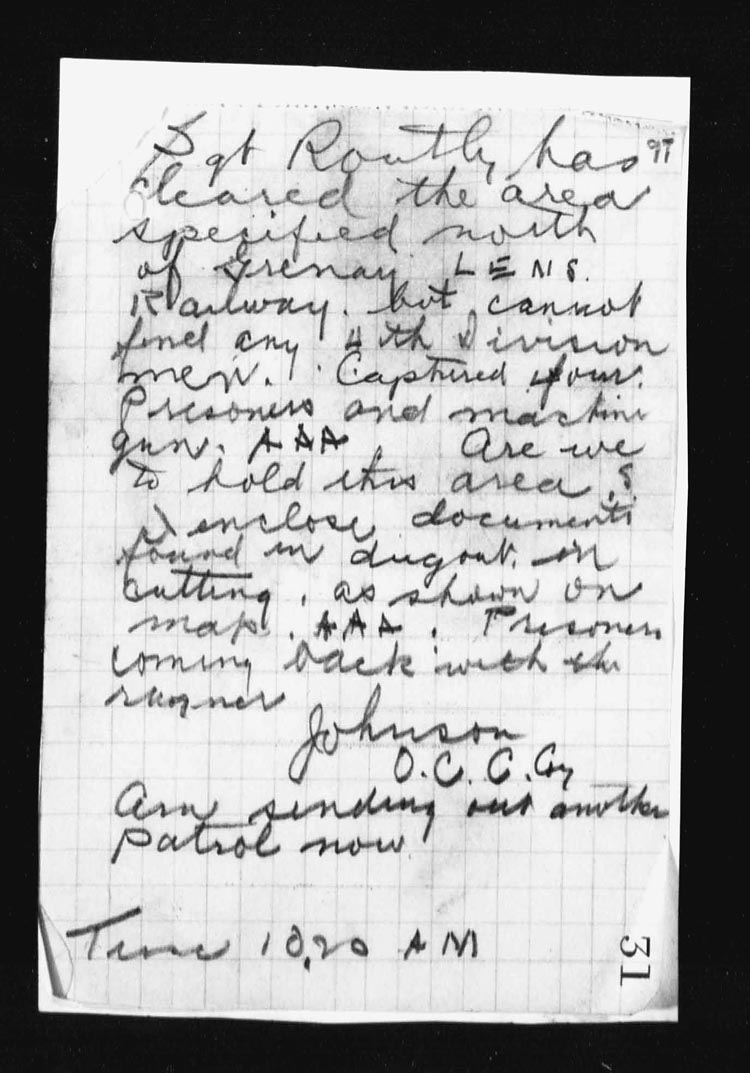 97
Sgt Routly has
cleared the area
specified north
of Grenay LENS.
Railway. but cannot
find any 4th Division
men. Captured four.
Prisoners and machine
gun. AAA. Are we
to hold this area ?
I enclose documents
found in dugout. in
cutting, as shown on
map. AAA. Prisoners
coming back with the
runner
Johnson
O.C. C. Coy
Am sending out another
patrol now
Time 10.20 AM
31